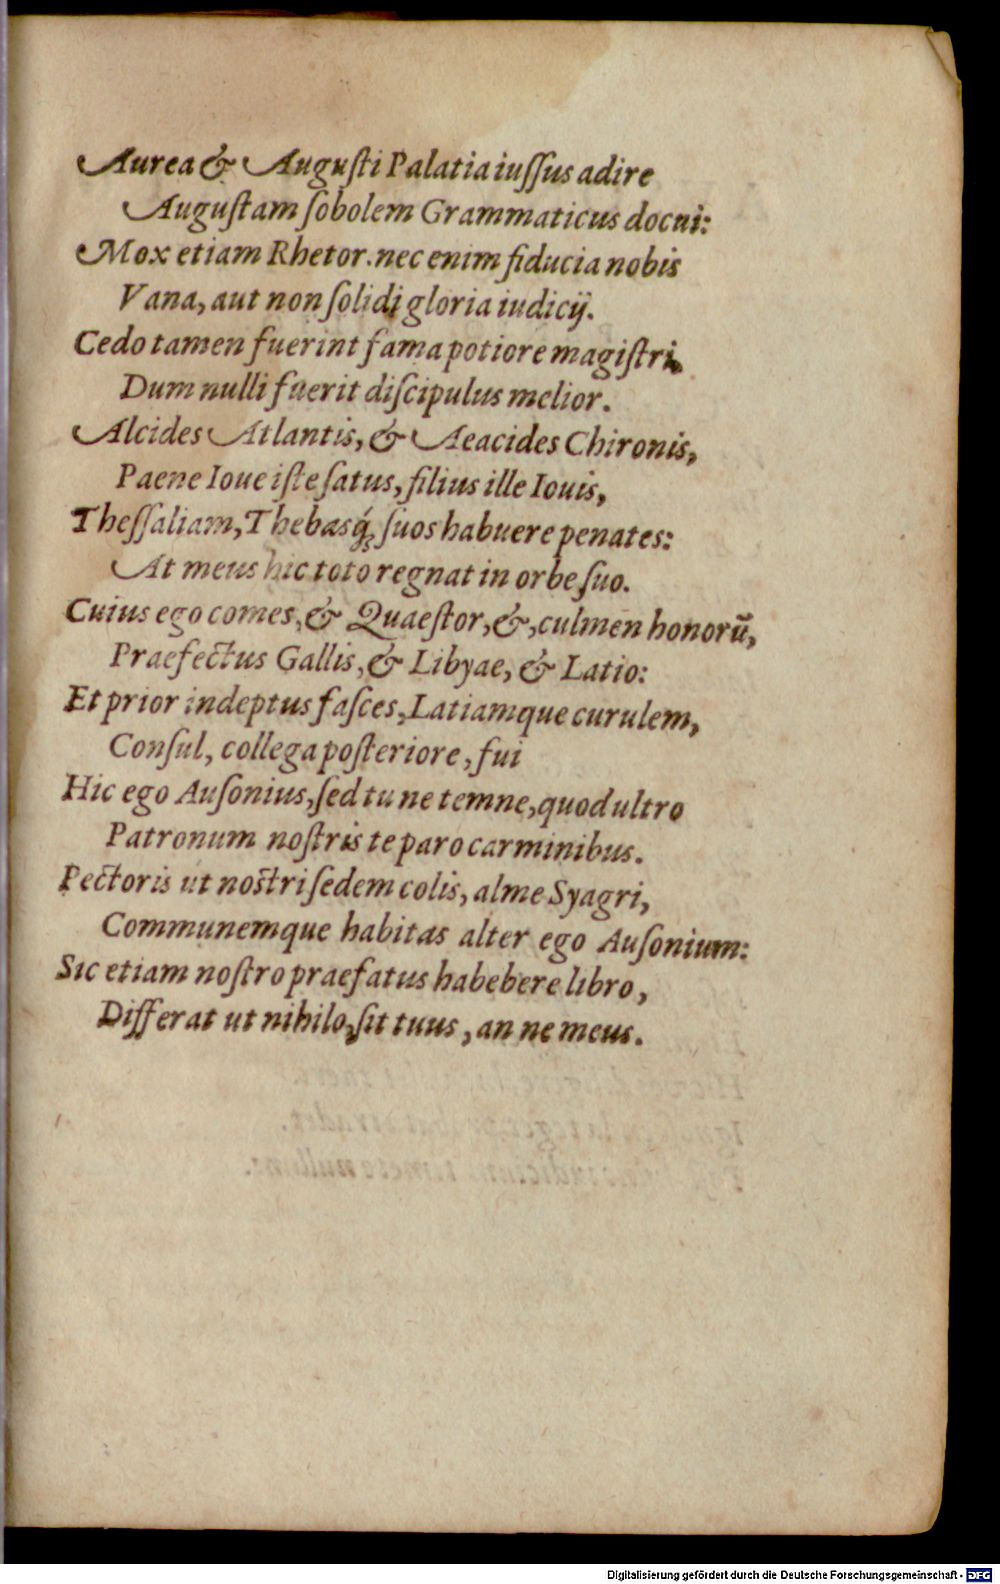 Aurea & Augusti Palatia iuſſus adire
Auguſtam ſobolem Grammaticus docui:
Mox etiam Rhetor. nec enim fiducia nobis
Vana, aut non ſolidi gloria iudicij.
Cedo tamen fuerint fama potiore magiſtri,
Dum nulli fuerit diſcipulus melior.
Alcides Atlantis, & Aeacides Chironis,
Paene Ioue iſte ſatus, filius ille Iouis,
Theſſaliam, Thebasq́; ſuos habuere penates:
At meus hic toto regnat in orbe ſuo.
Cuius ego comes, & Quaeſtor, &, culmen honorũ,
Praefectus Gallis, & Libyae, & Latio:
Et prior indeptus faſces, Latiamque curulem,
Conſul, collega poſteriore, fui
Hic ego Auſonius, ſed tu ne temne, quod ultro
Patronum noſtris te paro carminibus.
Pectoris ut noſtri ſedem colis, alme Syagri,
Communemque habitas alter ego Auſonium:
Sic etiam noſtro praefatus habebere libro,
Differat ut nihilo, ſit tuus, an ne meus.
Digitalisierung gefördert durch die Deutsche Forschungsgemeinschaft - DFG